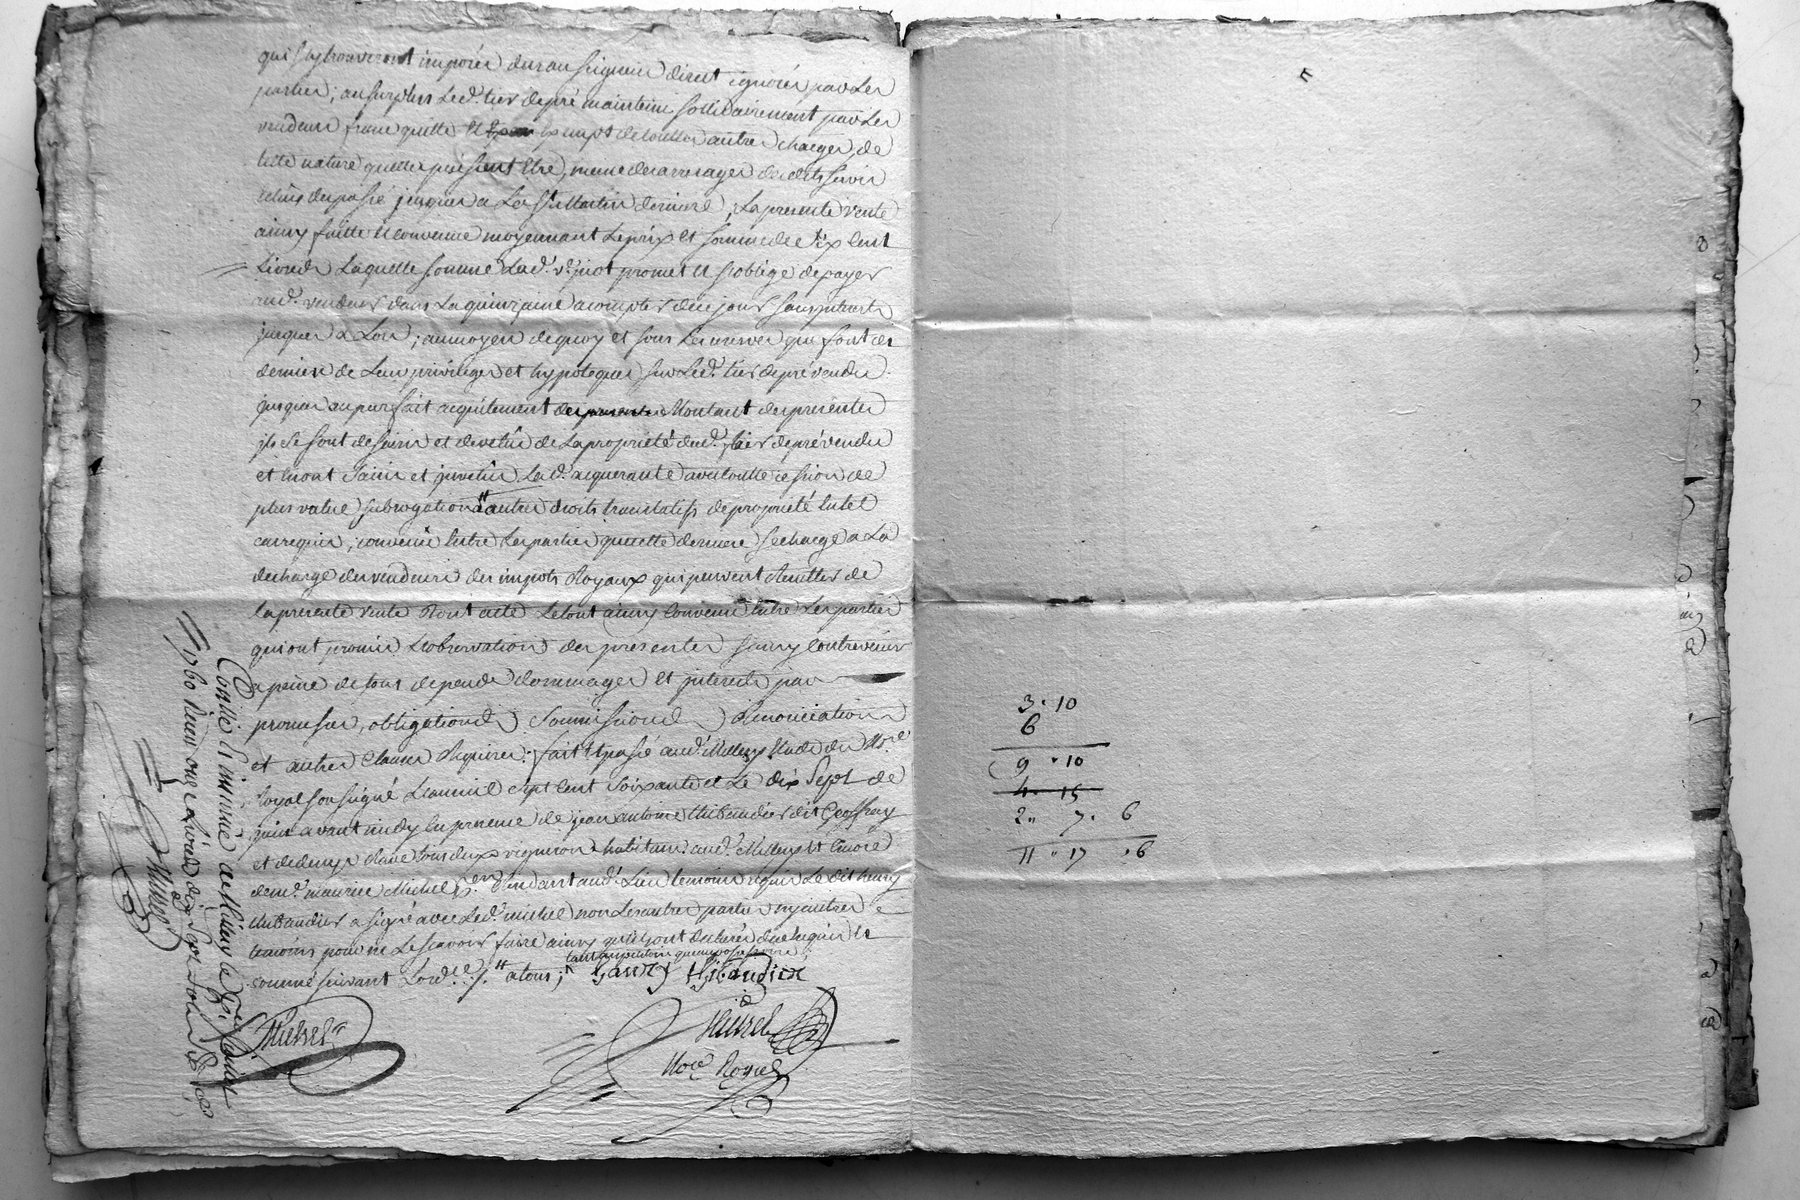 qui s'y trouveront imposés dus au seigneur direct ignorés par les
parties; au surplus led. tier de pré maintenu sollidairement par les
vendeurs franc quitte et exempt de touttes autres charges de
telle nature quelles puissent être, meme des arrerages desdits servis
échus du passé jusques a la St Martin derniere, la presente vente
ainsy faitte et convenue moyennant le prix et somme de six cent
Livres laquelle somme lad. ve. promet et s'oblige de payer
aud. vendeurs dans la quinzaine a compter de ce jour sans interest
jusques a lors; au moyen de quoy et sous les reserves que font ces
derniers de leurs privileges et hypoteques sur led. tier de pré vendu
jusques au parfait aquitement des presentes Montant des presentes
ils se sont desaisis et devetus de la propriété dud. tiers de pré vendu
et en ont saisie et investie lad. aquerante avec toutte cession de
plus value subrogation et autres droits translatifs de propriété en tel
cas requis; convenu entre les parties que cette derniere se charge a la
decharge des vendeurs des impots Royaux qui peuvent resulter de
la presente vente dont acte le tout ainsy convenu entre les parties
qui ont promis l'observation des presentes sans y contrevenir
a peine de tous depends dommages et interests par
promesses, obligations, soumissions, renonciations
et autres clauses requises: fait et passé aud. Millery Etude du Nore.
Royal soussigné L'an mil sept cent soixante et le dix sept de
juin avant midy en presence de jean antoine thibaudier dit Geoffray
et de denys tous deux vignerons habitans aud. Millery et encore
de me. maurice Michel residant aud. Lieu temoins requis led. thibaudier
a signé avec led. michel non les autres parties ny autres
temoins pour ne le scavoir faire ainsy qu'ils ont declaré de ce requis et
sommés suivant l'ordce. /. " a tous;
Thibaudier
Michel
Nore. Royal
Controllé et insinué a
1760 Reçu onze livres dix sept sols six d.
3 · 10
6
9 · 10
4 · 15
2 " 7 · 6
11 · 17 · 6